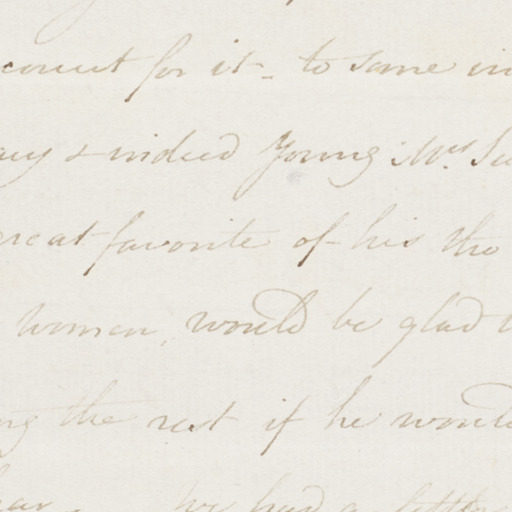 for it - to some
& indeed Young Mrs
great favorite of his tho
women, would be glad
the rest if he would
we had a little